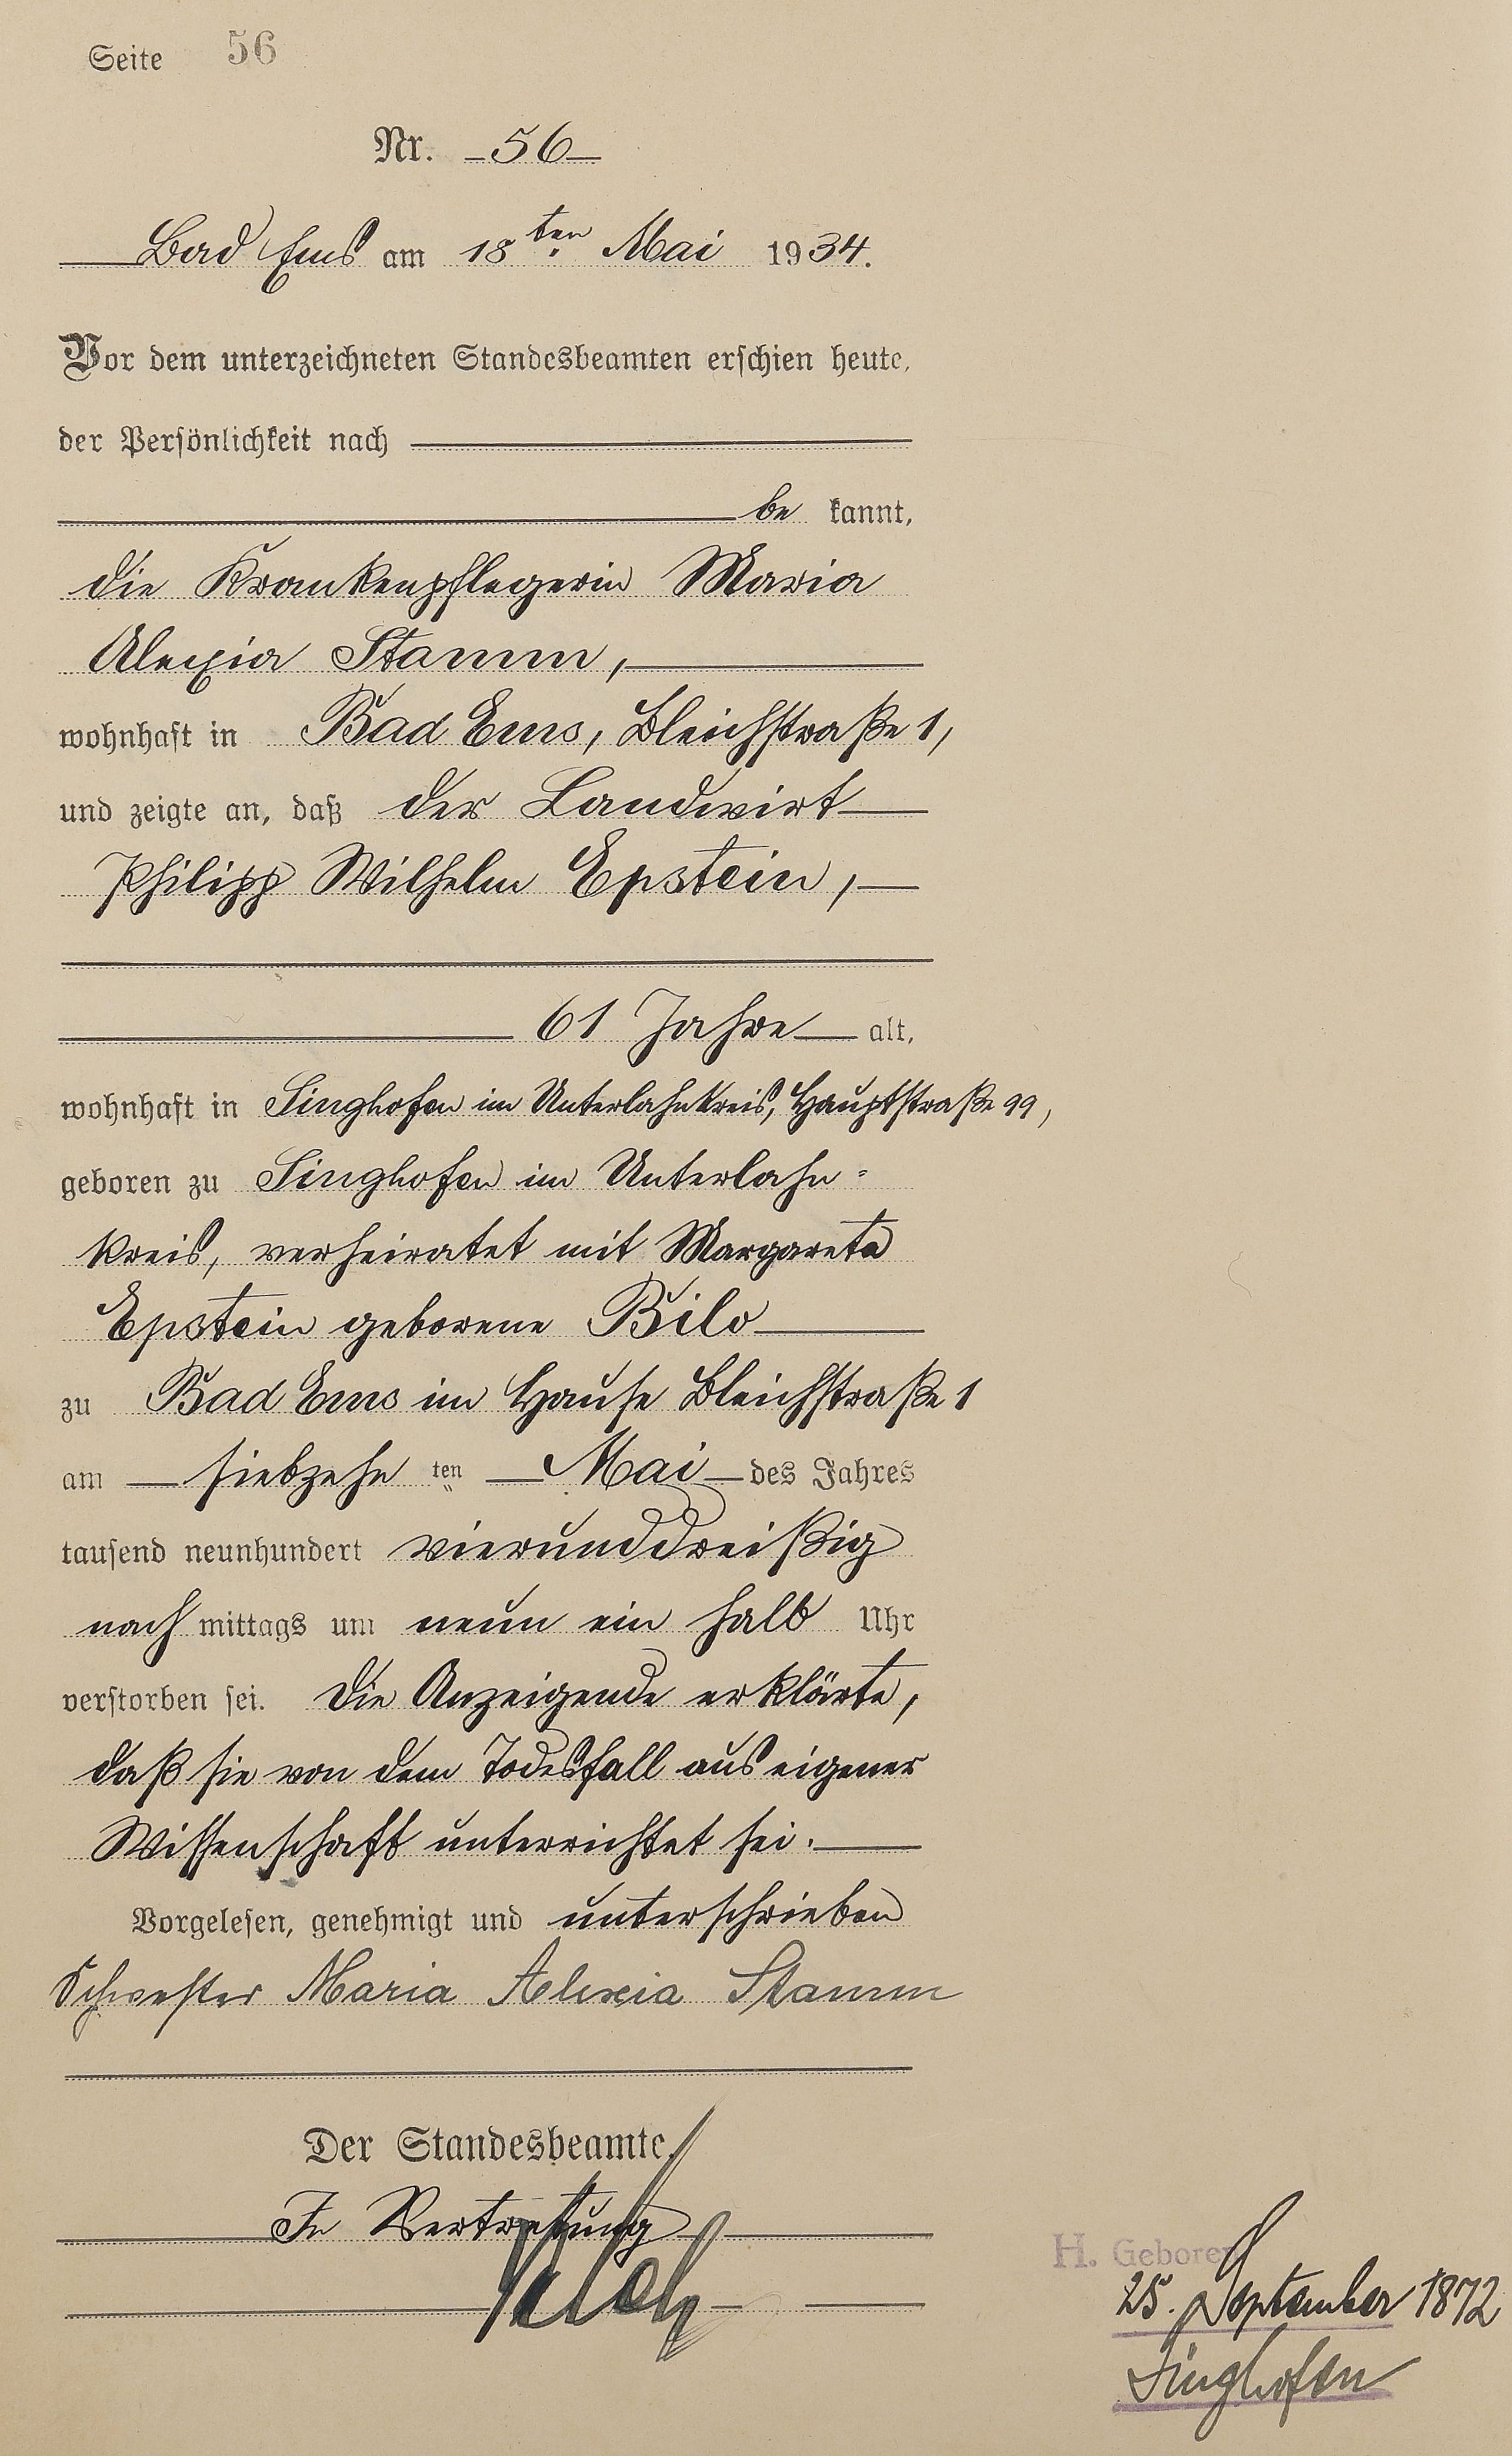 Seite 56
Nr. 56
Bad Ems am 18ten Mai 1934.
Vor dem unterzeichneten Standesbeamten erschien heute,
der Persönlichkeit nach
be kannt,
die Krankenpflegerin Maria
Alexia Stamm,
wohnhaft in Bad Ems, Bleichstraße 1,
und zeigte an, daß der Landwirt
Philipp Wilhelm Epstein,
61 Jahre alt,
wohnhaft in Singhofen im Unterlahnkreis, Hauptstraße 99,
geboren zu Singhofen im Unterlahn=
kreis, verheiratet mit Margareta
Epstein geborene Bilo
zu Bad Ems im Hause Bleichstraße 1
am siebzehn ten Mai des Jahres
tausend neunhundert vierunddreißig
nach mittags um neun ein halb Uhr
verstorben sei. Die Anzeigende erklärte,
daß sie von dem Todesfall aus eigener
Wissenschaft unterrichtet sei.
Vorgelesen, genehmigt und unterschrieben
Schwester Maria Alexia Stamm
Der Standesbeamte.
In Vertretung
H. Geboren
25. September 1872
Singhofen